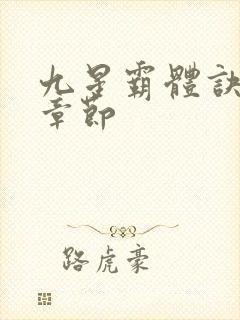 九星霸體訣
章節
路虎豪